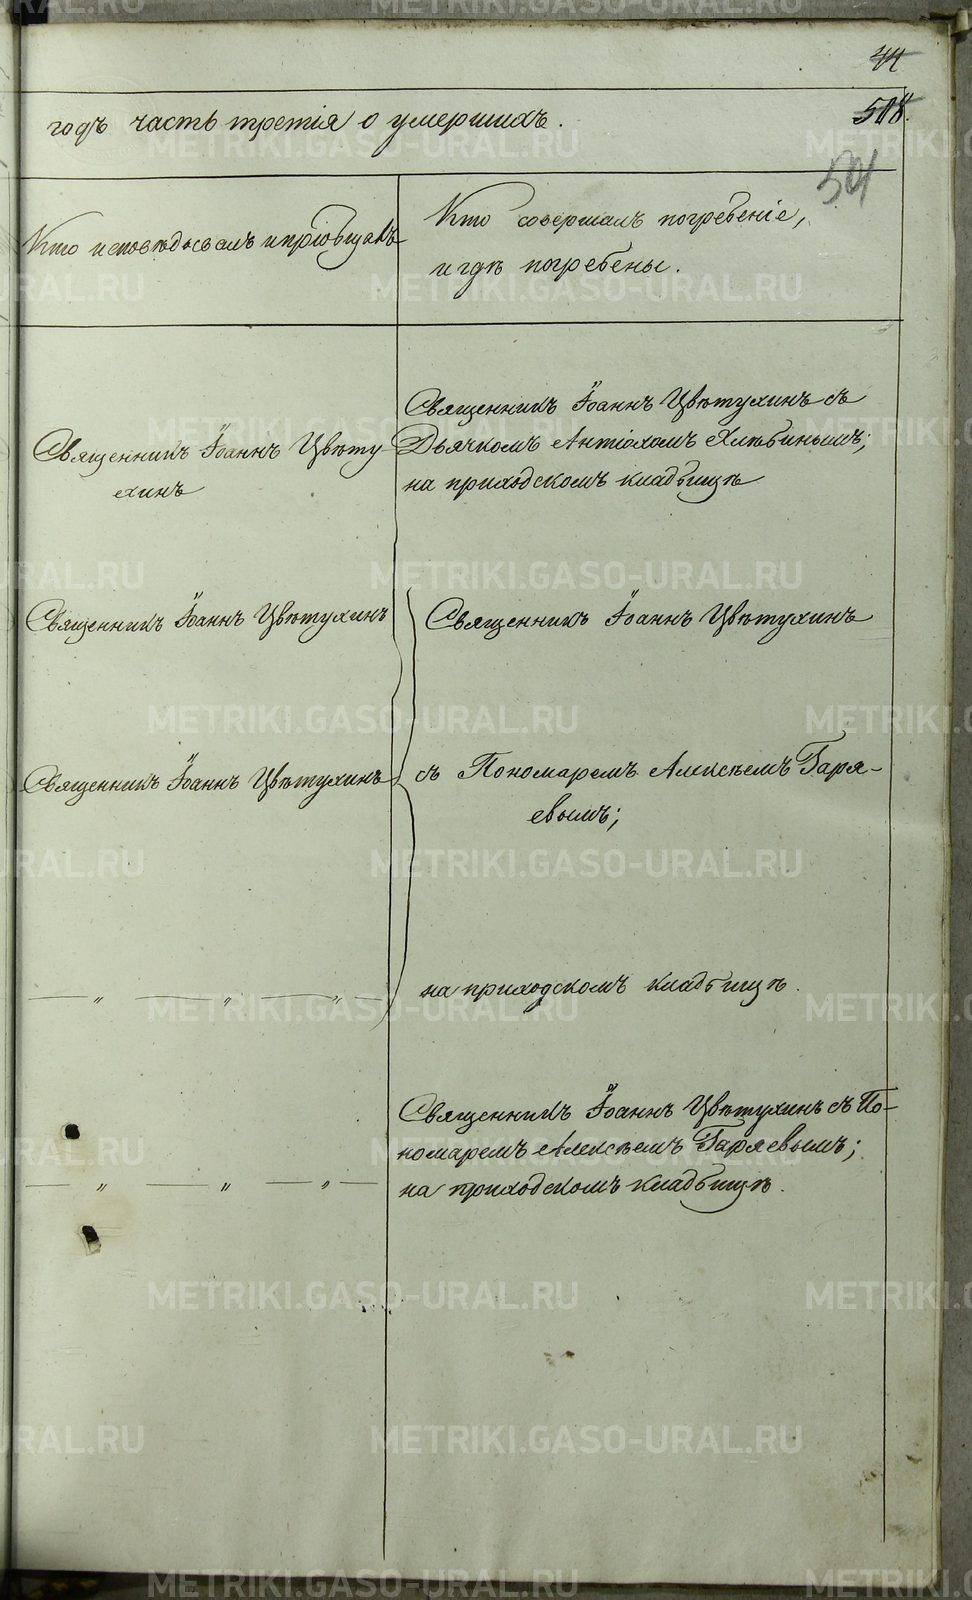 44
508.
годъ часть третія о умершихъ.
501
Кто исповѣдывалъ и пріобщалъ
Кто совершалъ погребеніе,
и гдѣ погребены.
Священникъ Іоаннъ Цвѣту-
хинъ
Священникъ Іоаннъ Цвѣтухинъ съ
Дьячкомъ Антіохомъ Хлѣбинымъ;
на приходскомъ кладбищѣ
Священникъ Іоаннъ Цвѣтухинъ
Священникъ Іоаннъ Цвѣтухинъ
Священникъ Іоаннъ Цвѣтухинъ
съ Пономаремъ Алексѣемъ Гаря-
евымъ;
— „ — „ — „ —
на приходскомъ кладбищѣ.
Священникъ Іоаннъ Цвѣтухинъ съ По-
номаремъ Алексѣемъ Гаряевымъ;
на приходскомъ кладбищѣ.
— „ — „ — „ —
METRIKI.GASO-URAL.RU